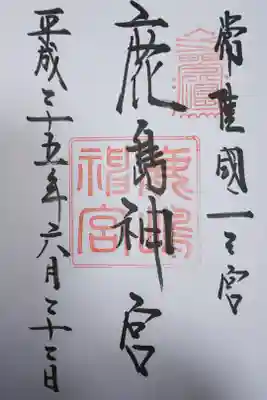 常陸國一之宮
鹿島神宮
鹿嶋神宮
平成二十五年六月二十二日